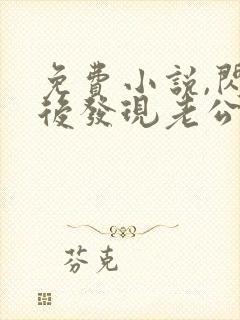 免費小說,閃
後發現老公
芬克